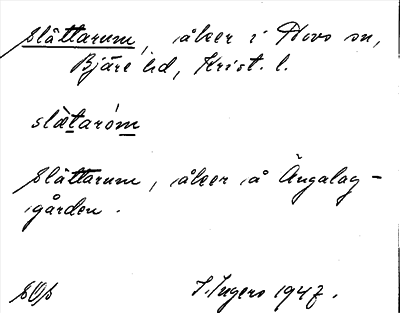 Slättarum, åker i Hovs sn,
Bjäre hd, Krist. l.
slætaróm
Slättarum, åker å Ängalag-
gården.
SOS
I. Ingers 1947.